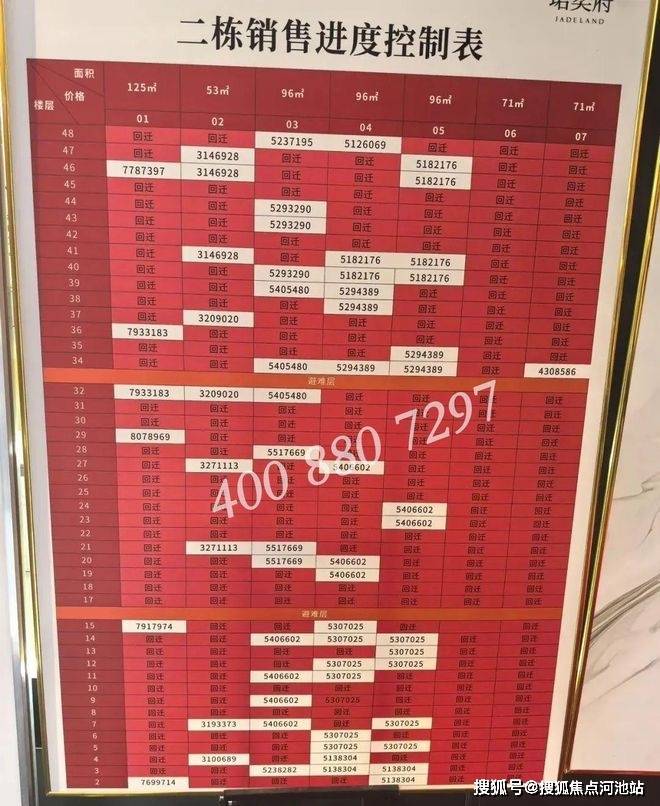 JADELAND
二栋销售进度控制表
面积 125㎡ 53㎡ 96㎡ 96㎡ 96㎡ 71㎡ 71㎡
价格
楼层 01 02 03 04 05 06 07
48 回迁 回迁 5237195 5126069 回迁 回迁 回迁
47 回迁 3146928 回迁 回迁 5182176 回迁 回迁
46 7787397 3146928 回迁 回迁 5182176 回迁 回迁
45 回迁 回迁 回迁 回迁 回迁 回迁 回迁
44 回迁 回迁 5293290 回迁 回迁 回迁 回迁
43 回迁 回迁 5293290 回迁 回迁 回迁 回迁
42 回迁 回迁 回迁 回迁 回迁 回迁 回迁
41 回迁 3146928 回迁 5182176 5182176 回迁 回迁
40 回迁 回迁 5293290 5182176 5182176 回迁 回迁
39 回迁 回迁 5405480 5294389 回迁 回迁 回迁
38 回迁 回迁 回迁 5294389 回迁 回迁 回迁
37 回迁 3209020 回迁 回迁 回迁 回迁 回迁
36 7933183 回迁 回迁 回迁 回迁 回迁 回迁
35 回迁 回迁 回迁 回迁 5294389 回迁 回迁
34 回迁 回迁 5405480 5294389 5294389 回迁 4308586
避难层
32 7933183 3209020 5405480 回迁 回迁 回迁 回迁
31 回迁 回迁 回迁 回迁 回迁 回迁 回迁
30 回迁 回迁 回迁 回迁 回迁 回迁 回迁
29 8078969 回迁 回迁 回迁 回迁 回迁 回迁
28 回迁 回迁 5517669 回迁 回迁 回迁 回迁
27 回迁 3271113 回迁 5406602 回迁 回迁 回迁
26 回迁 回迁 回迁 回迁 回迁 回迁 回迁
25 回迁 回迁 回迁 回迁 回迁 回迁 回迁
24 回迁 回迁 回迁 回迁 5406602 回迁 回迁
23 回迁 回迁 回迁 回迁 5406602 回迁 回迁
22 回迁 回迁 回迁 回迁 回迁 回迁 回迁
21 回迁 3271113 5517669 回迁 回迁 回迁 回迁
20 回迁 回迁 5517669 5406602 回迁 回迁 回迁
19 回迁 回迁 回迁 5406602 回迁 回迁 回迁
18 回迁 回迁 回迁 回迁 回迁 回迁 回迁
17 回迁 回迁 回迁 回迁 回迁 回迁 回迁
避难层
15 7917974 回迁 回迁 5307025 回迁 回迁 回迁
14 回迁 回迁 5406602 5307025 5307025 回迁 回迁
13 回迁 回迁 回迁 回迁 5307025 回迁 回迁
12 回迁 回迁 回迁 5307025 5307025 回迁 回迁
11 回迁 回迁 5406602 5307025 回迁 回迁 回迁
10 回迁 回迁 回迁 回迁 回迁 回迁 回迁
9 回迁 回迁 5406602 5307025 回迁 回迁 回迁
8 回迁 回迁 回迁 回迁 回迁 回迁 回迁
7 回迁 3193373 5406602 回迁 5307025 回迁 回迁
6 回迁 回迁 回迁 5307025 回迁 回迁 回迁
5 回迁 回迁 回迁 5307025 5307025 回迁 回迁
4 回迁 3100689 回迁 5138304 回迁 回迁 回迁
3 回迁 回迁 5238282 5138304 5138304 回迁 回迁
2 7699714 回迁 回迁 回迁 5138304 回迁 回迁
400 880 7297
搜狐号@搜狐焦点河池站